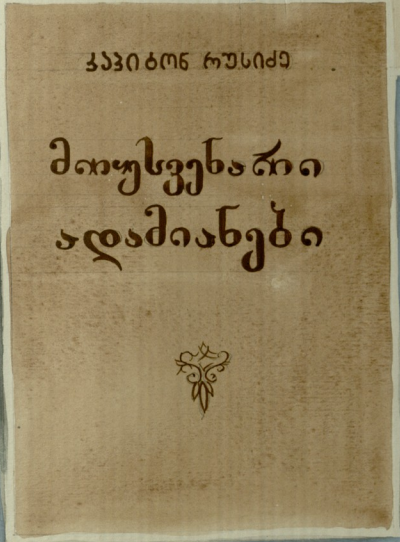 კაპიტონ რუსიძე
მოუსვენარი
ადამიანები